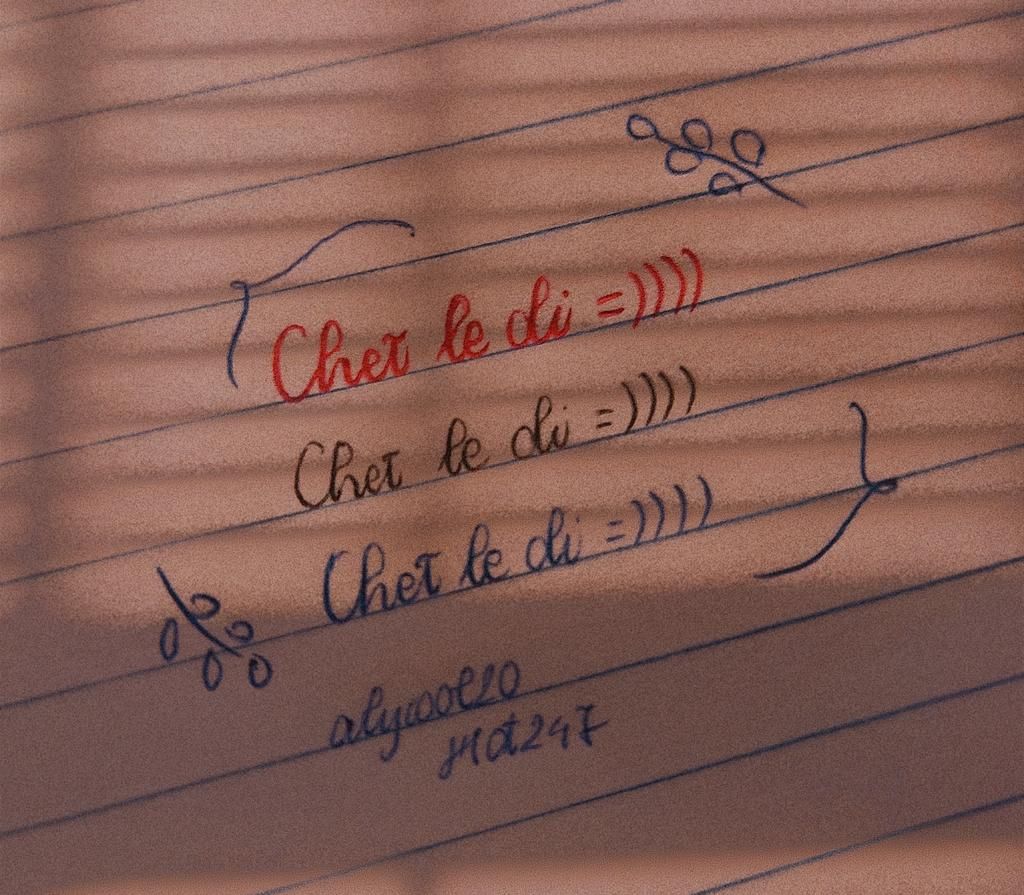 Chet le di =))))
Chet le di =))))
Chet le di =))))
Hot247